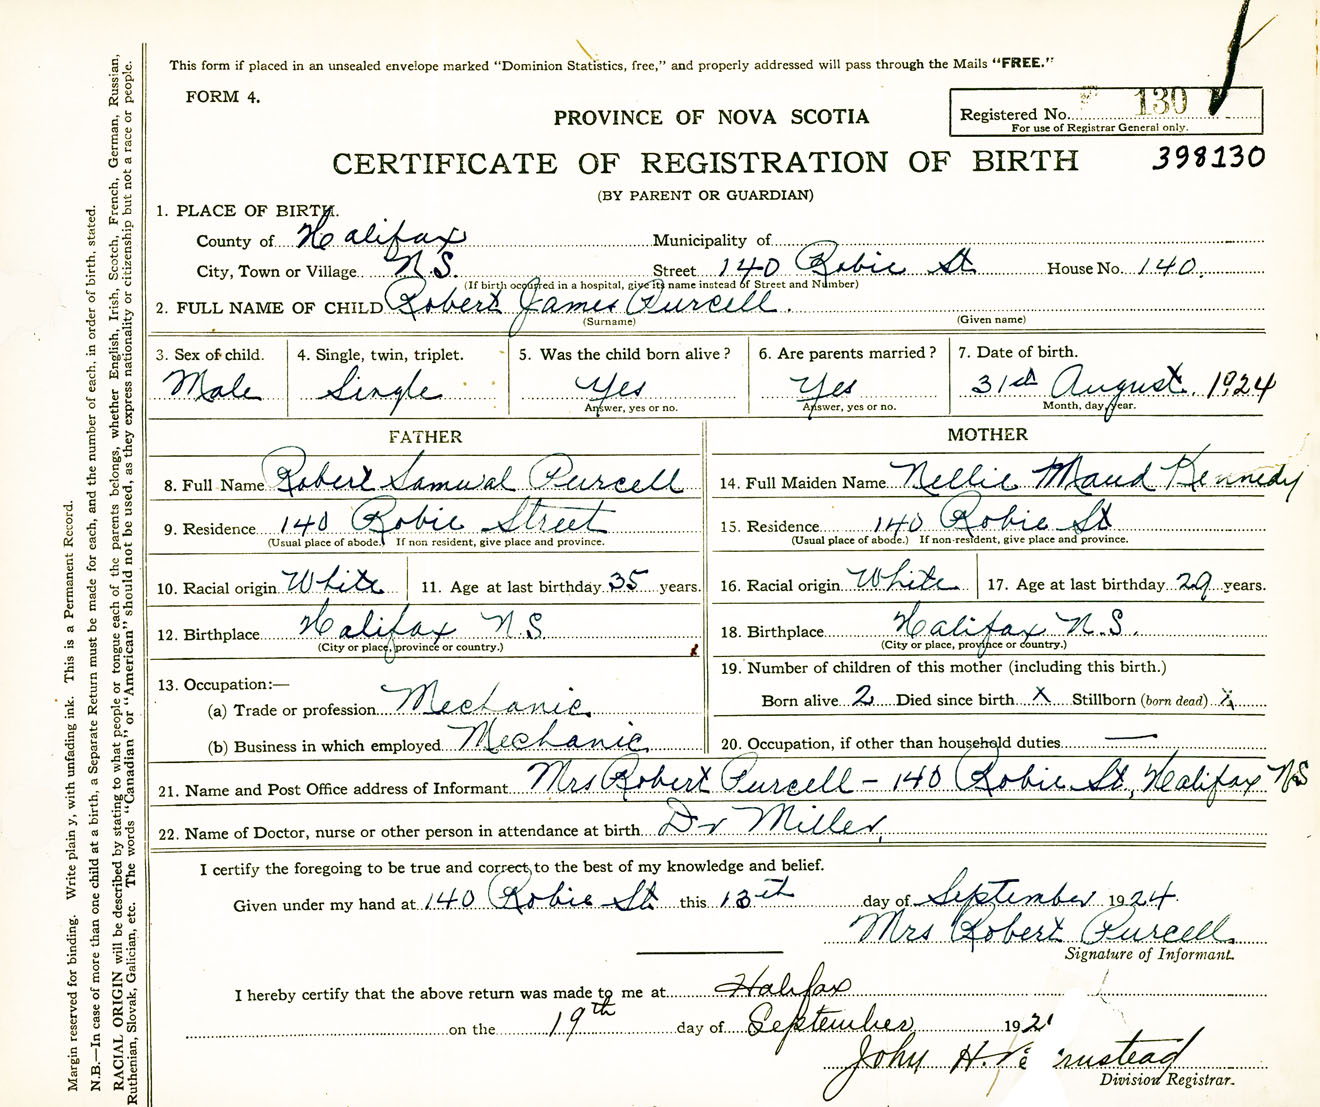 This form if placed in an unsealed envelope marked "Dominion Statistics, free," and properly addressed will pass through the Mails "FREE."
FORM 4.
PROVINCE OF NOVA SCOTIA
Registered No. 130
For use of Registrar General only.
CERTIFICATE OF REGISTRATION OF BIRTH 398130
(BY PARENT OR GUARDIAN)
1. PLACE OF BIRTH.
County of Halifax Municipality of
City, Town or Village N.S. Street 140 Robie St House No. 140
(If birth occurred in a hospital, give its name instead of Street and Number)
2. FULL NAME OF CHILD Robert James Purcell.
(Surname) (Given name)
3. Sex of child. 4. Single, twin, triplet. 5. Was the child born alive? 6. Are parents married? 7. Date of birth.
Male Single Yes Yes 31st August. 1924
Answer, yes or no. Answer, yes or no. Month, day, year.
FATHER MOTHER
8. Full Name Robert Samual Purcell 14. Full Maiden Name Nellie Maud Kennedy
9. Residence 140 Robie Street 15. Residence 140 Robie St
(Usual place of abode. If non resident, give place and province. (Usual place of abode.) If non-resident, give place and province.
10. Racial origin White 11. Age at last birthday 35 years. 16. Racial origin White 17. Age at last birthday 29 years.
12. Birthplace Halifax N.S 18. Birthplace Halifax N.S.
(City or place, province or country.) (City or place, province or country.)
13. Occupation:— 19. Number of children of this mother (including this birth.)
(a) Trade or profession Mechanic. Born alive 2 Died since birth X Stillborn (born dead) X
(b) Business in which employed Mechanic 20. Occupation, if other than household duties —
21. Name and Post Office address of Informant Mrs Robert Purcell - 140 Robie St, Halifax NS
22. Name of Doctor, nurse or other person in attendance at birth Dr Miller,
I certify the foregoing to be true and correct, to the best of my knowledge and belief.
Given under my hand at 140 Robie St. this 13th day of September 1924.
Mrs Robert Purcell.
Signature of Informant.
I hereby certify that the above return was made to me at Halifax
on the 19th day of September 192
John H.
Division Registrar.
Margin reserved for binding. Write plain y, with unfading ink. This is a Permanent Record.
N.B.—In case of more than one child at a birth, a Separate Return must be made for each, and the number of each, in order of birth, stated.
RACIAL ORIGIN will be described by stating to what people or tongue each of the parents belongs, whether English, Irish, Scotch, French, German, Russian,
Ruthenian, Slovak, Galician, etc. The words "Canadian" or "American" should not be used, as they express nationality or citizenship but not a race or people.